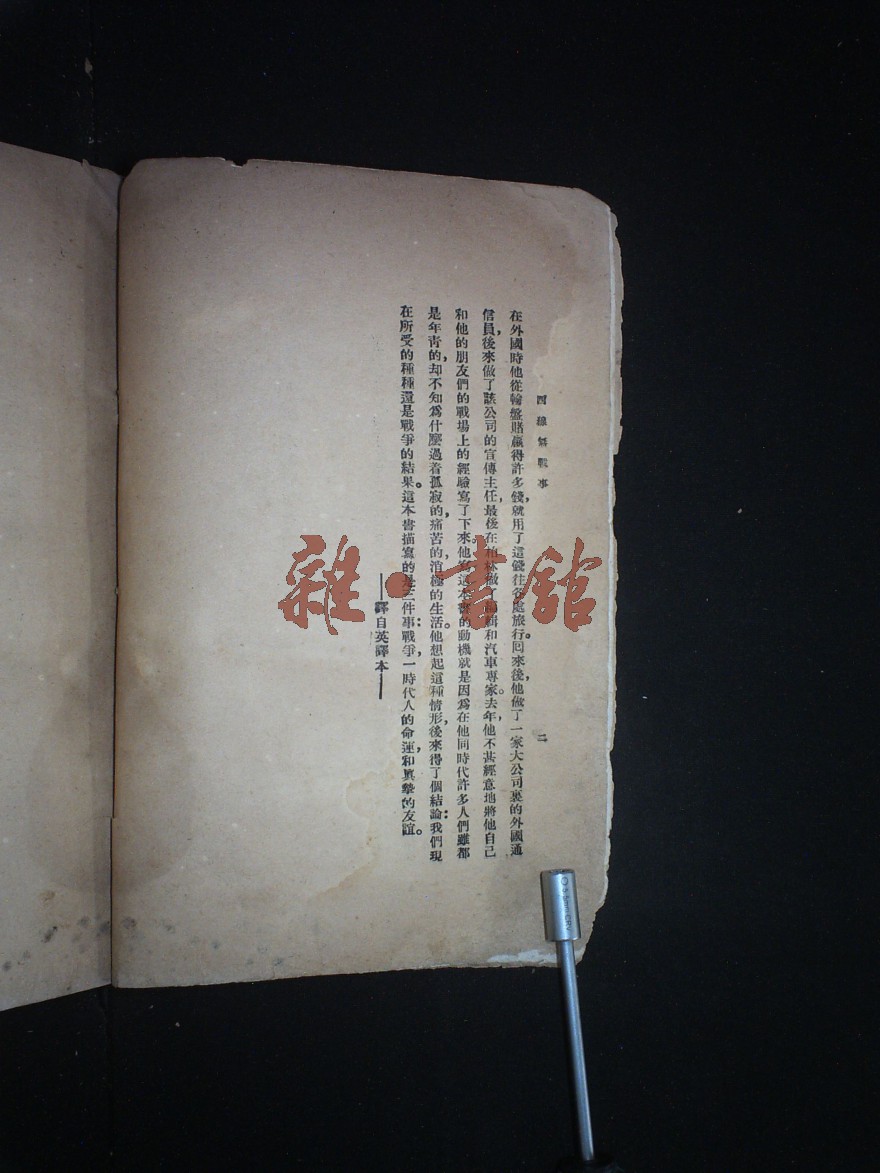 西線無戰事
二
在外國時他從輪盤賭贏得許多錢,就用了這錢往各處旅行。回來後,他做了一家大公司裏的外國通
信員,後來做了該公司的宣傳主任,最後在柏林做了編輯和汽車專家。去年,他不甚經意地將他自己
和他的朋友們的戰場上的經驗寫了下來。他寫這本書的動機就是因爲在他同時代許多人們雖都
是年青的,却不知爲什麼過着孤寂的,痛苦的,消極的生活。他想起這種情形,後來得了個結論:我們現
在所受的種種還是戰爭的結果。這本書描寫的是三件事:戰爭,一時代人的命運,和眞摯的友誼。
——譯自英譯本——
雜·書館